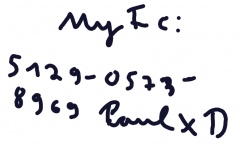 My Ic:
5129-0573-
8969 Paul XD